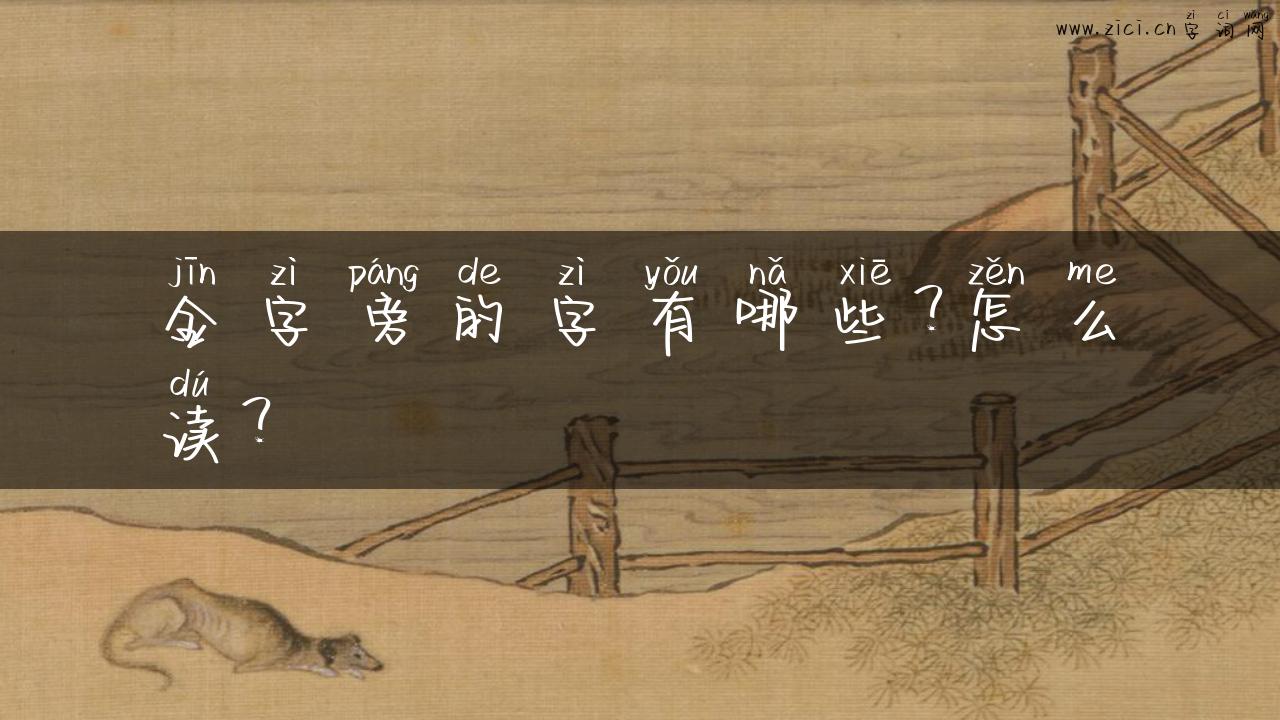 zì cí wǎng
www.zici.cn字词网
jīn zì páng de zì yǒu nǎ xiē zěn me
金字旁的字有哪些？怎么
dú
读？